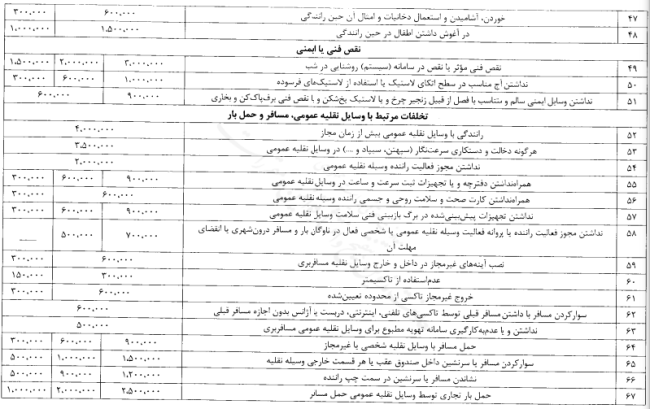 ۴۷ خوردن، آشامیدن و استعمال دخانیات و امثال آن حین رانندگی ۶۰۰,۰۰۰ ۳۰۰,۰۰۰
۴۸ در آغوش داشتن اطفال در حین رانندگی ۱,۵۰۰,۰۰۰ ۱,۰۰۰,۰۰۰
نقص فنی یا ایمنی
۴۹ نقص فنی مؤثر یا نقص در سامانه (سیستم) روشنایی در شب ۳,۰۰۰,۰۰۰ ۲,۰۰۰,۰۰۰ ۱,۵۰۰,۰۰۰
۵۰ نداشتن آج مناسب در سطح اتکای لاستیک یا استفاده از لاستیک‌های فرسوده ۱,۰۰۰,۰۰۰ ۶۰۰,۰۰۰ ۳۰۰,۰۰۰
۵۱ نداشتن وسایل ایمنی سالم و متناسب با فصل از قبیل زنجیر چرخ و یا لاستیک یخ‌شکن و یا نقص فنی برف‌پاک‌کن و بخاری ۹۰۰,۰۰۰ ۶۰۰,۰۰۰
تخلفات مرتبط با وسایل نقلیه عمومی، مسافر و حمل بار
۵۲ رانندگی با وسایل نقلیه عمومی بیش از زمان مجاز ۴,۰۰۰,۰۰۰
۵۳ هرگونه دخالت و دستکاری سرعت‌نگار (سپهتن، سیپاد و ...) در وسایل نقلیه عمومی ۳,۵۰۰,۰۰۰
۵۴ نداشتن مجوز فعالیت راننده وسیله نقلیه عمومی ۲,۰۰۰,۰۰۰
۵۵ همراه‌نداشتن دفترچه و یا تجهیزات ثبت سرعت و ساعت در وسایل نقلیه عمومی ۹۰۰,۰۰۰ ۶۰۰,۰۰۰ ۳۰۰,۰۰۰
۵۶ همراه‌نداشتن کارت صحت و سلامت روحی و جسمی راننده وسیله نقلیه عمومی ۶۰۰,۰۰۰ ۳۰۰,۰۰۰
۵۷ نداشتن تجهیزات پیش‌بینی‌شده در برگ بازبینی فنی سلامت وسایل نقلیه عمومی ۹۰۰,۰۰۰ ۶۰۰,۰۰۰ ۳۰۰,۰۰۰
۵۸ نداشتن مجوز فعالیت راننده یا پروانه فعالیت وسیله نقلیه عمومی یا شخصی فعال در ناوگان بار و مسافر درون‌شهری یا انقضای ۷۰۰,۰۰۰ ۵۰۰,۰۰۰ ——
مهلت آن
۵۹ نصب آینه‌های غیرمجاز در داخل و خارج وسایل نقلیه مسافربری ۶۰۰,۰۰۰ ۳۰۰,۰۰۰
۶۰ عدم‌استفاده از تاکسیمتر ۳۰۰,۰۰۰ ۱۵۰,۰۰۰
۶۱ خروج غیرمجاز تاکسی از محدوده تعیین‌شده ۶۰۰,۰۰۰ ۳۰۰,۰۰۰
۶۲ سوارکردن مسافر با داشتن مسافر قبلی توسط تاکسی‌های تلفنی، اینترنتی، دربست یا آژانس بدون اجازه مسافر قبلی ۶۰۰,۰۰۰
۶۳ نداشتن و یا عدم‌به‌کارگیری سامانه تهویه مطبوع برای وسایل نقلیه عمومی مسافربری ۵۰۰,۰۰۰
۶۴ حمل مسافر با وسایل نقلیه شخصی یا غیرمجاز ۹۰۰,۰۰۰ ۶۰۰,۰۰۰ ۳۰۰,۰۰۰
۶۵ سوارکردن مسافر یا سرنشین داخل صندوق عقب یا هر قسمت خارجی وسیله نقلیه ۱,۵۰۰,۰۰۰ ۱,۰۰۰,۰۰۰ ۵۰۰,۰۰۰
۶۶ نشاندن مسافر یا سرنشین در سمت چپ راننده ۱,۲۰۰,۰۰۰ ۹۰۰,۰۰۰ ۵۰۰,۰۰۰
۶۷ حمل بار تجاری توسط وسایل نقلیه عمومی حمل مسافر ۲,۵۰۰,۰۰۰ ۲,۰۰۰,۰۰۰ ۱,۰۰۰,۰۰۰